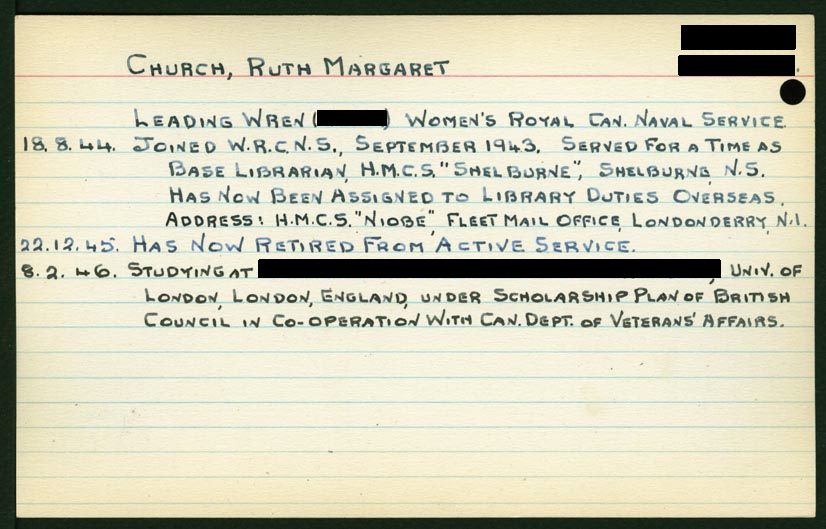 CHURCH, RUTH MARGARET
LEADING WREN ( ) WOMEN'S ROYAL CAN. NAVAL SERVICE
18.8.44. JOINED W.R.C.N.S., SEPTEMBER 1943. SERVED FOR A TIME AS
BASE LIBRARIAN, H.M.C.S. "SHELBURNE", SHELBURNE, N.S.
HAS NOW BEEN ASSIGNED TO LIBRARY DUTIES OVERSEAS.
ADDRESS: H.M.C.S. "NIOBE", FLEET MAIL OFFICE, LONDONDERRY, N.I.
22.12.45. HAS NOW RETIRED FROM ACTIVE SERVICE.
8.2.46. STUDYING AT , UNIV. OF
LONDON, LONDON, ENGLAND, UNDER SCHOLARSHIP PLAN OF BRITISH
COUNCIL IN CO-OPERATION WITH CAN. DEPT. OF VETERANS' AFFAIRS.